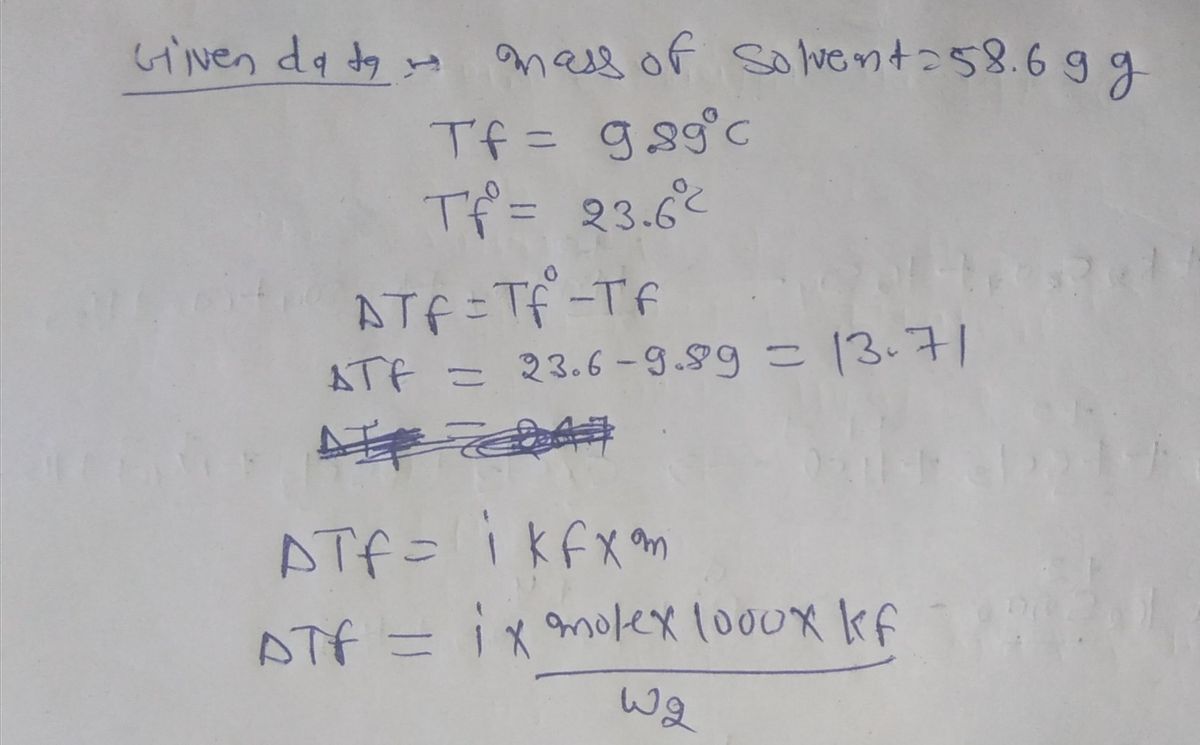 Given data → mass of solvent = 58.69 g
Tf = 9.89°C
Tf° = 23.6°C
ΔTf = Tf° - Tf
ΔTf = 23.6 - 9.89 = 13.71
ΔTf = i kf x m
ΔTf = i x mole x 1000 x kf
W2